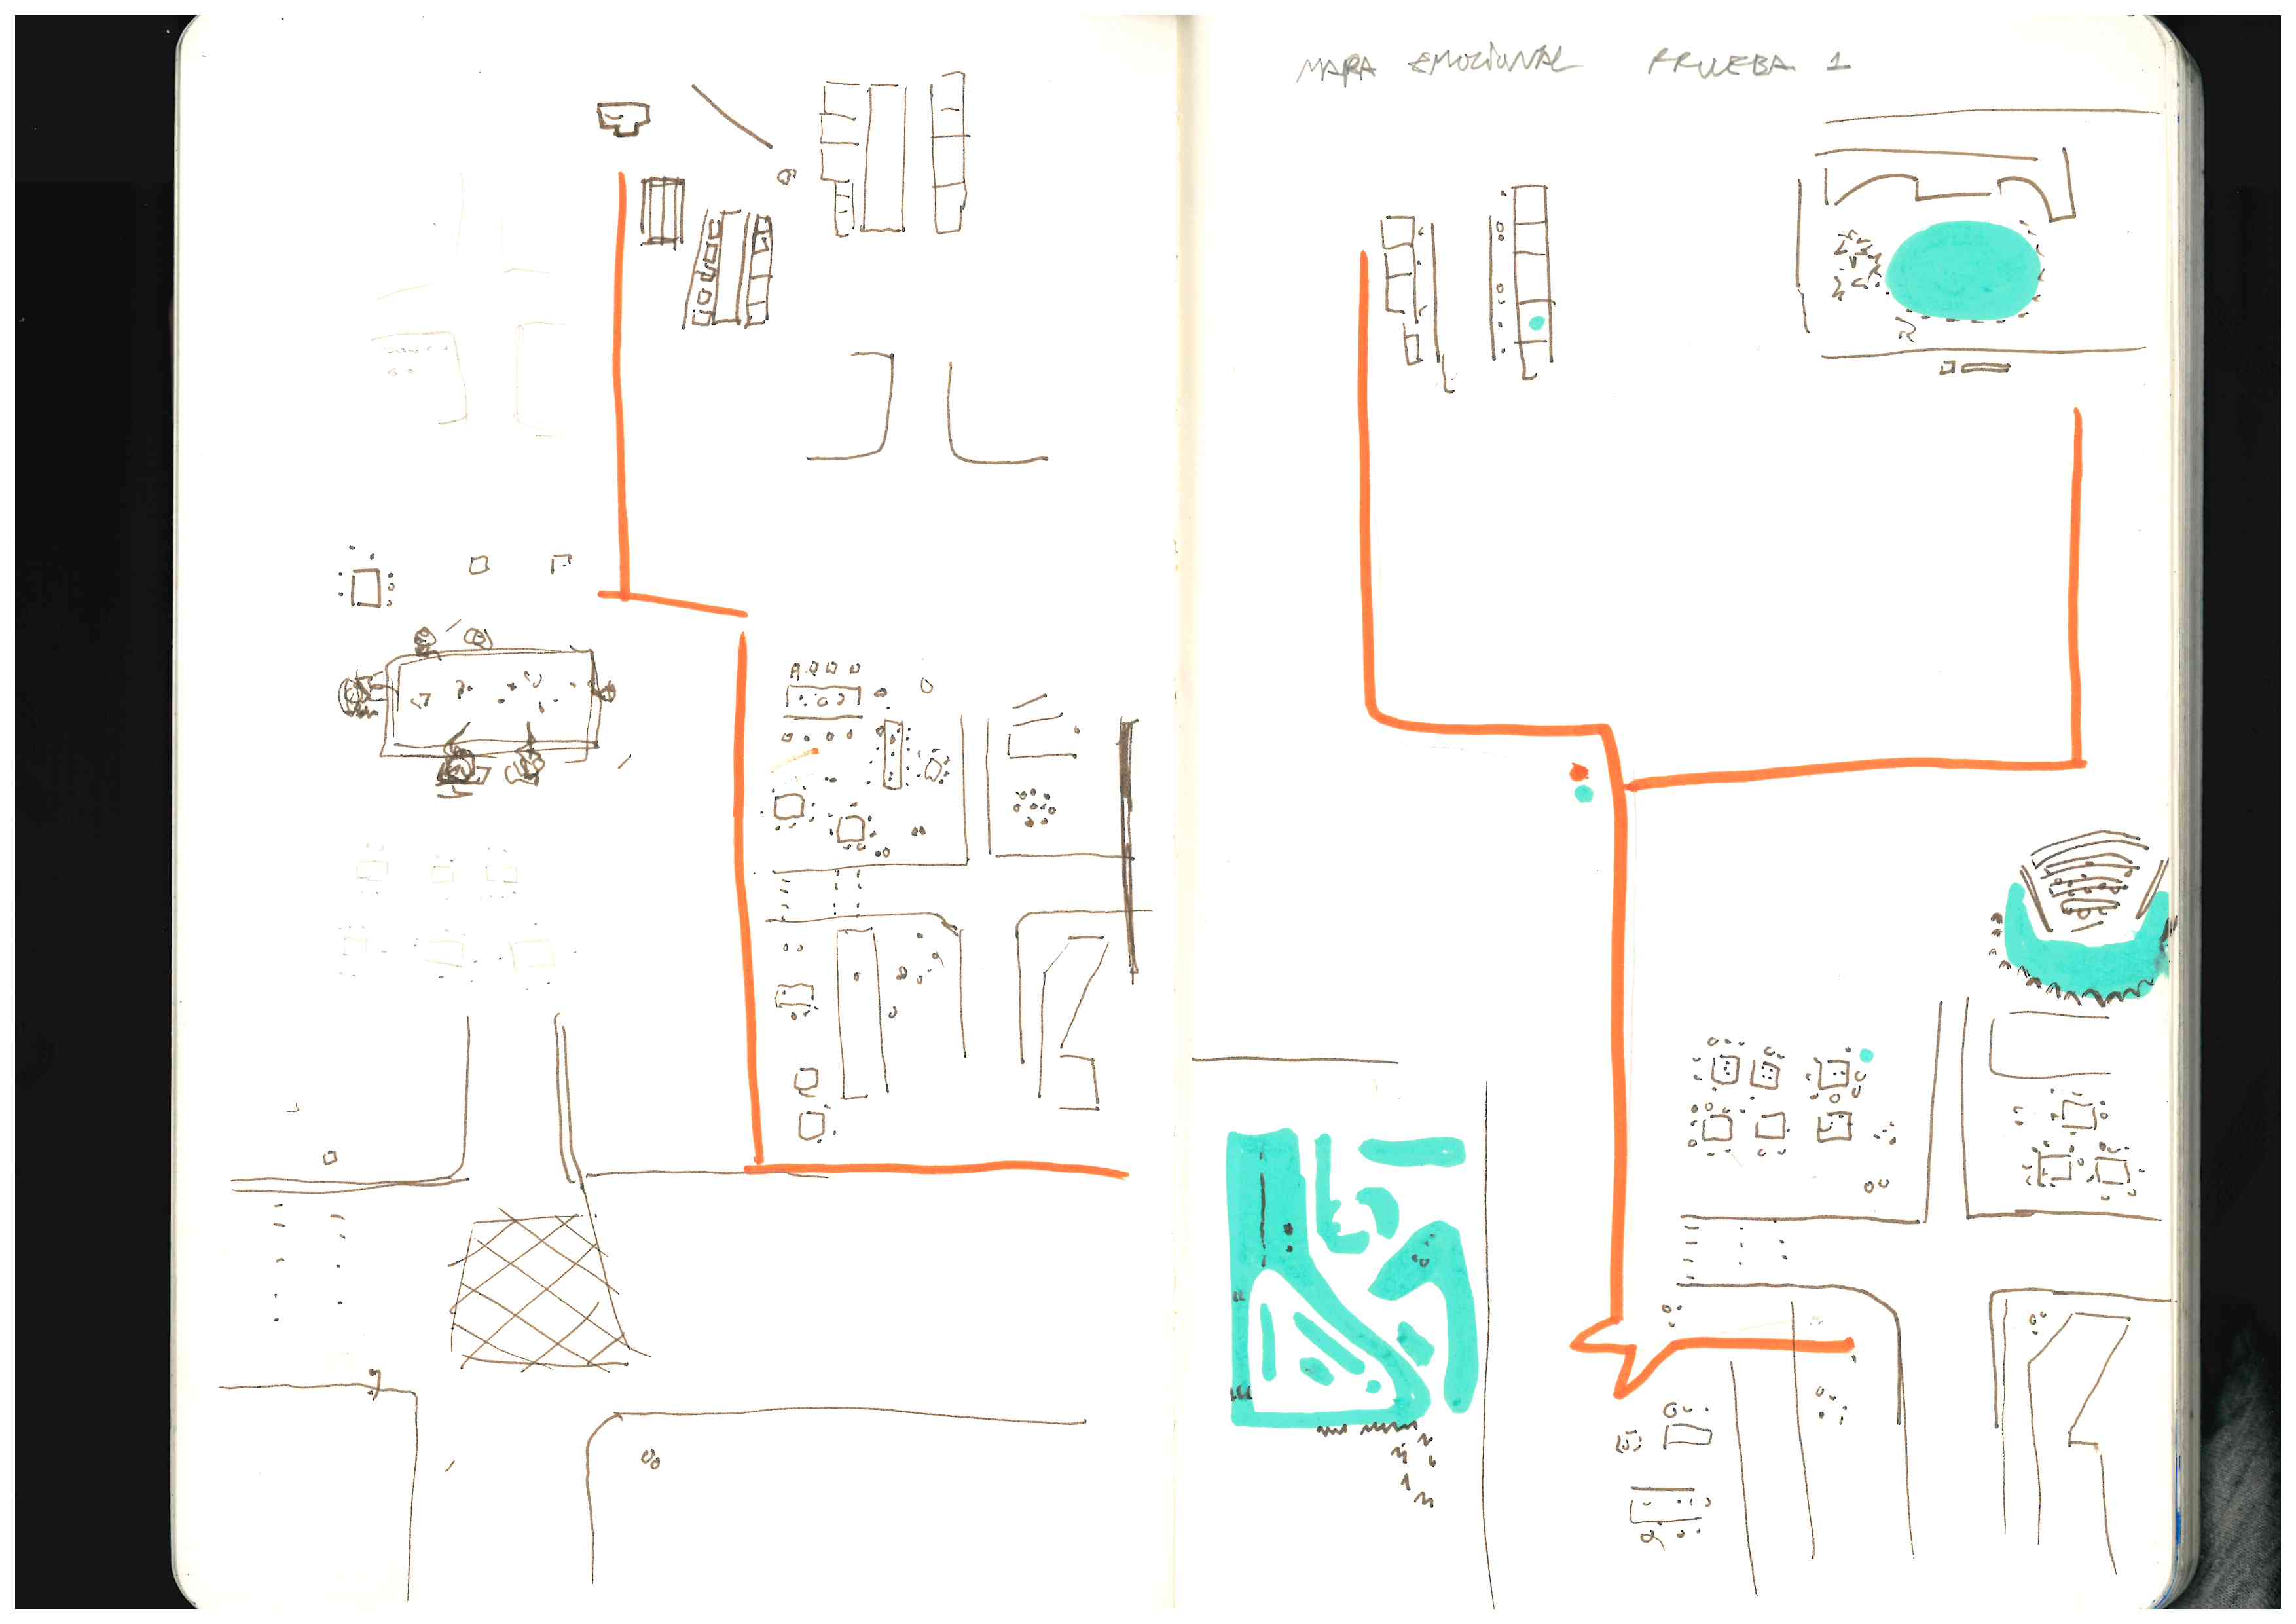 MAPA EMOZIONAL PRUEBA 1